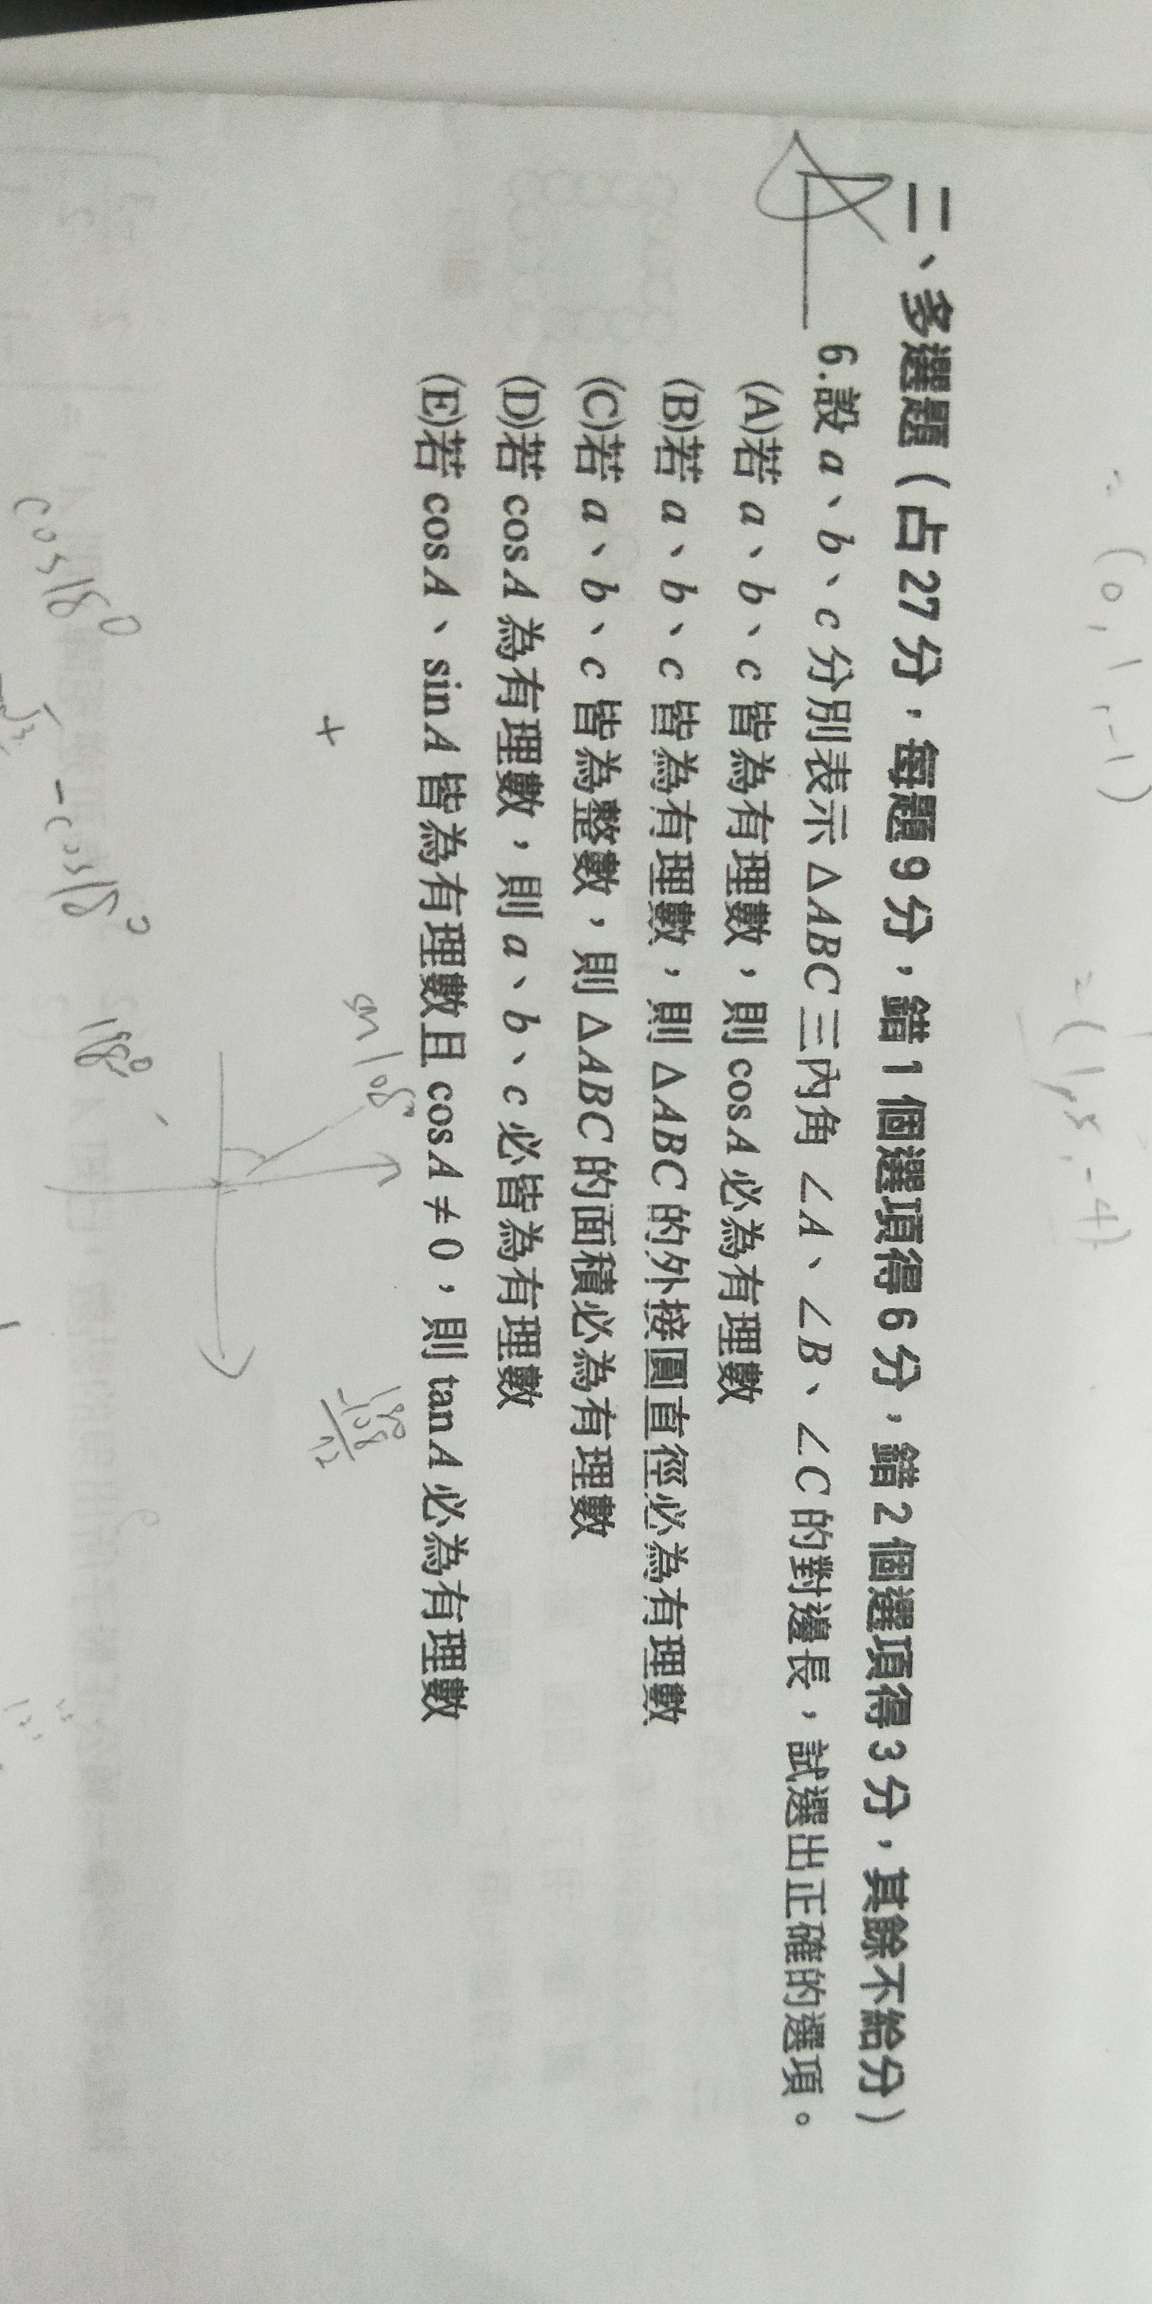 ∴ (0,1,-1)
=(1,3,-4)
二、多選題(占27分,每題9分,錯1個選項得6分,錯2個選項得3分,其餘不給分)
6.設a、b、c分別表示△ABC三內角∠A、∠B、∠C的對邊長,試選出正確的選項。
(A)若a、b、c皆為有理數,則cosA必為有理數
(B)若a、b、c皆為有理數,則△ABC的外接圓直徑必為有理數
(C)若a、b、c皆為整數,則△ABC的面積必為有理數
(D)若cosA為有理數,則a、b、c必皆為有理數
(E)若cosA、sinA皆為有理數且cosA≠0,則tanA必為有理數
+
sin108°
180
-108
72
198°
-cos18°
cos18°